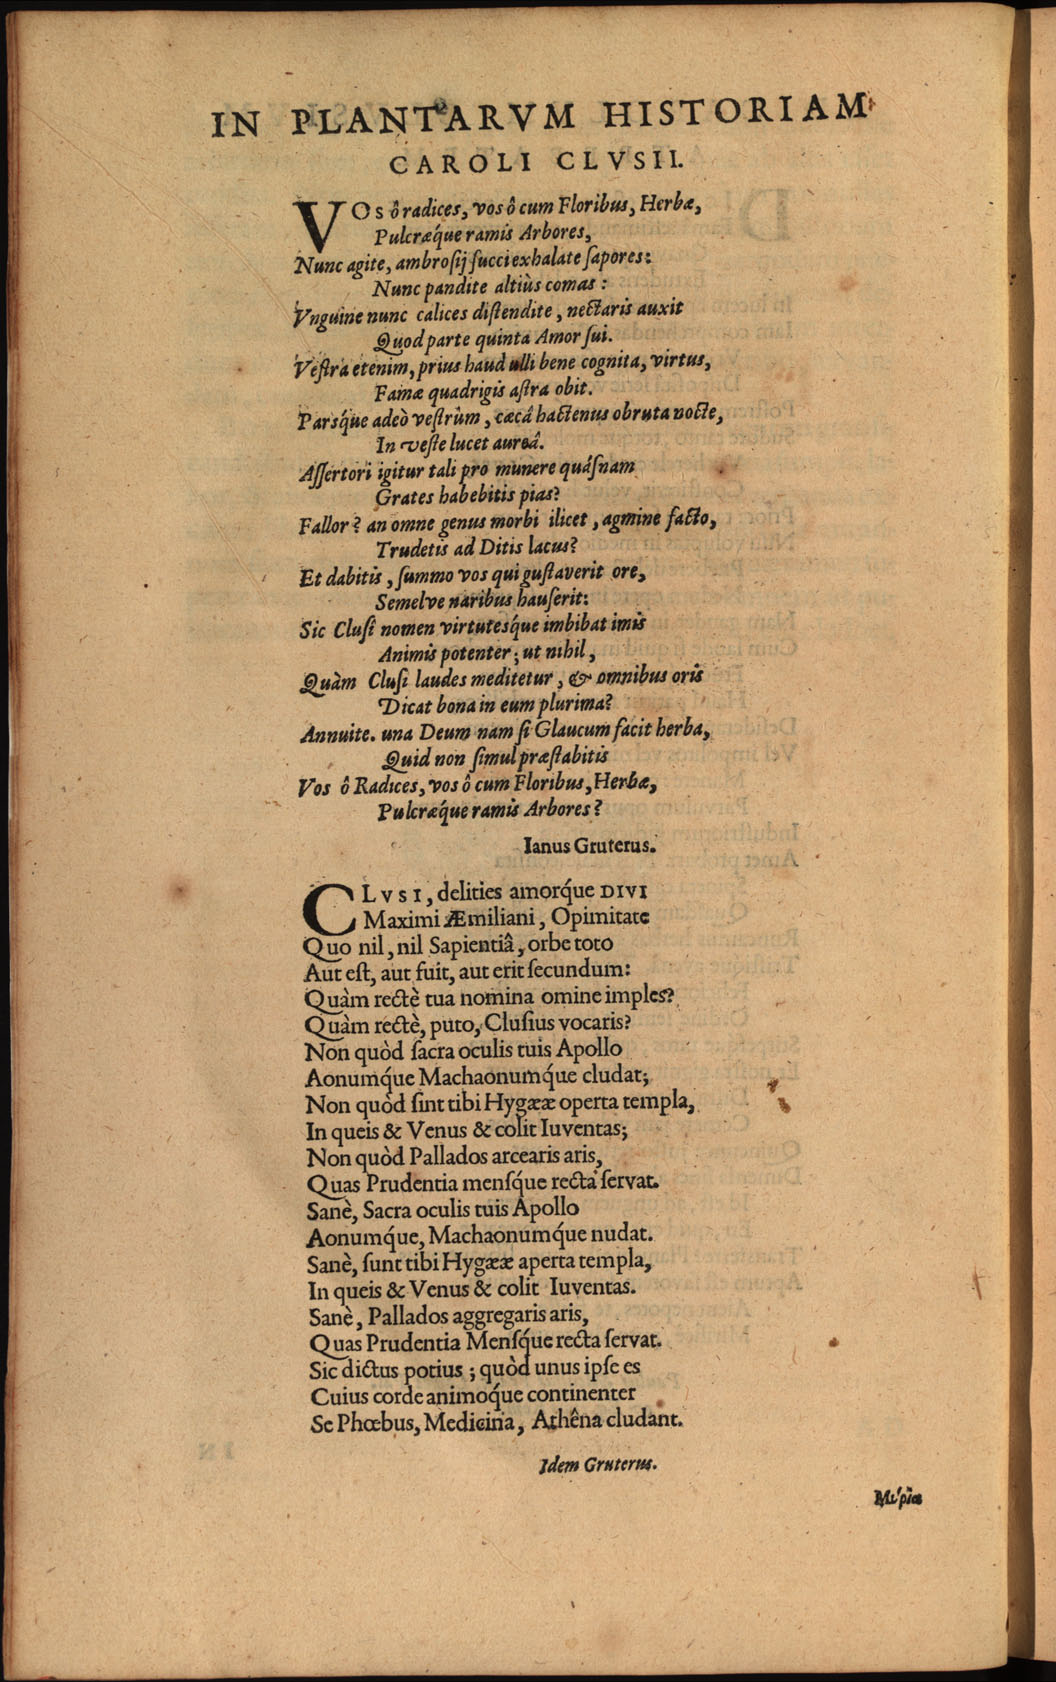 IN PLANTARVM HISTORIAM
CAROLI CLVSII.
VOS ô radices, vos ô cum Floribus, Herbæ,
Pulcræq́ue ramis Arbores,
Nunc agite, ambrosij succi exhalate sapores:
Nunc pandite altiùs comas:
Vnguine nunc calices distendite, nectaris auxit
Quod parte quinta Amor sui.
Vestra etenim, prius haud ulli bene cognita, virtus,
Famæ quadrigis astra obit.
Parsq́ue adeò vestrûm, cæcâ hactenus obruta nocte,
In veste lucet aureâ.
Assertori igitur tali pro munere quásnam
Grates habebitis pias?
Fallor? an omne genus morbi ilicet, agmine facto,
Trudetis ad Ditis lacus?
Et dabitis, summo vos qui gustaverit ore,
Semelve naribus hauserit:
Sic Clusî nomen virtutesq́ue imbibat imis
Animis potenter; ut nihil,
Quàm Clusi laudes meditetur, & omnibus oris
Dicat bona in eum plurima?
Annuite. una Deum nam si Glaucum facit herba,
Quid non simul præstabitis
Vos ô Radices, vos ô cum Floribus, Herbæ,
Pulcræq́ue ramis Arbores?
Ianus Gruterus.
CLVSI, delities amorq́ue DIVI
Maximi Æmiliani, Opimitate
Quo nil, nil Sapientiâ, orbe toto
Aut est, aut fuit, aut erit secundum:
Quàm rectè tua nomina omine imples?
Quàm rectè, puto, Clusius vocaris?
Non quòd sacra oculis tuis Apollo
Aonumq́ue Machaonumq́ue cludat;
Non quòd sint tibi Hygææ operta templa,
In queis & Venus & colit Iuventas;
Non quòd Pallados arcearis aris,
Quas Prudentia mensq́ue recta servat.
Sanè, Sacra oculis tuis Apollo
Aonumq́ue, Machaonumq́ue nudat.
Sanè, sunt tibi Hygææ aperta templa,
In queis & Venus & colit Iuventas.
Sanè, Pallados aggregaris aris,
Quas Prudentia Mensq́ue recta servat.
Sic dictus potius; quòd unus ipse es
Cuius corde animoq́ue continenter
Se Phœbus, Medicina, Athêna cludant.
Idem Gruterus.